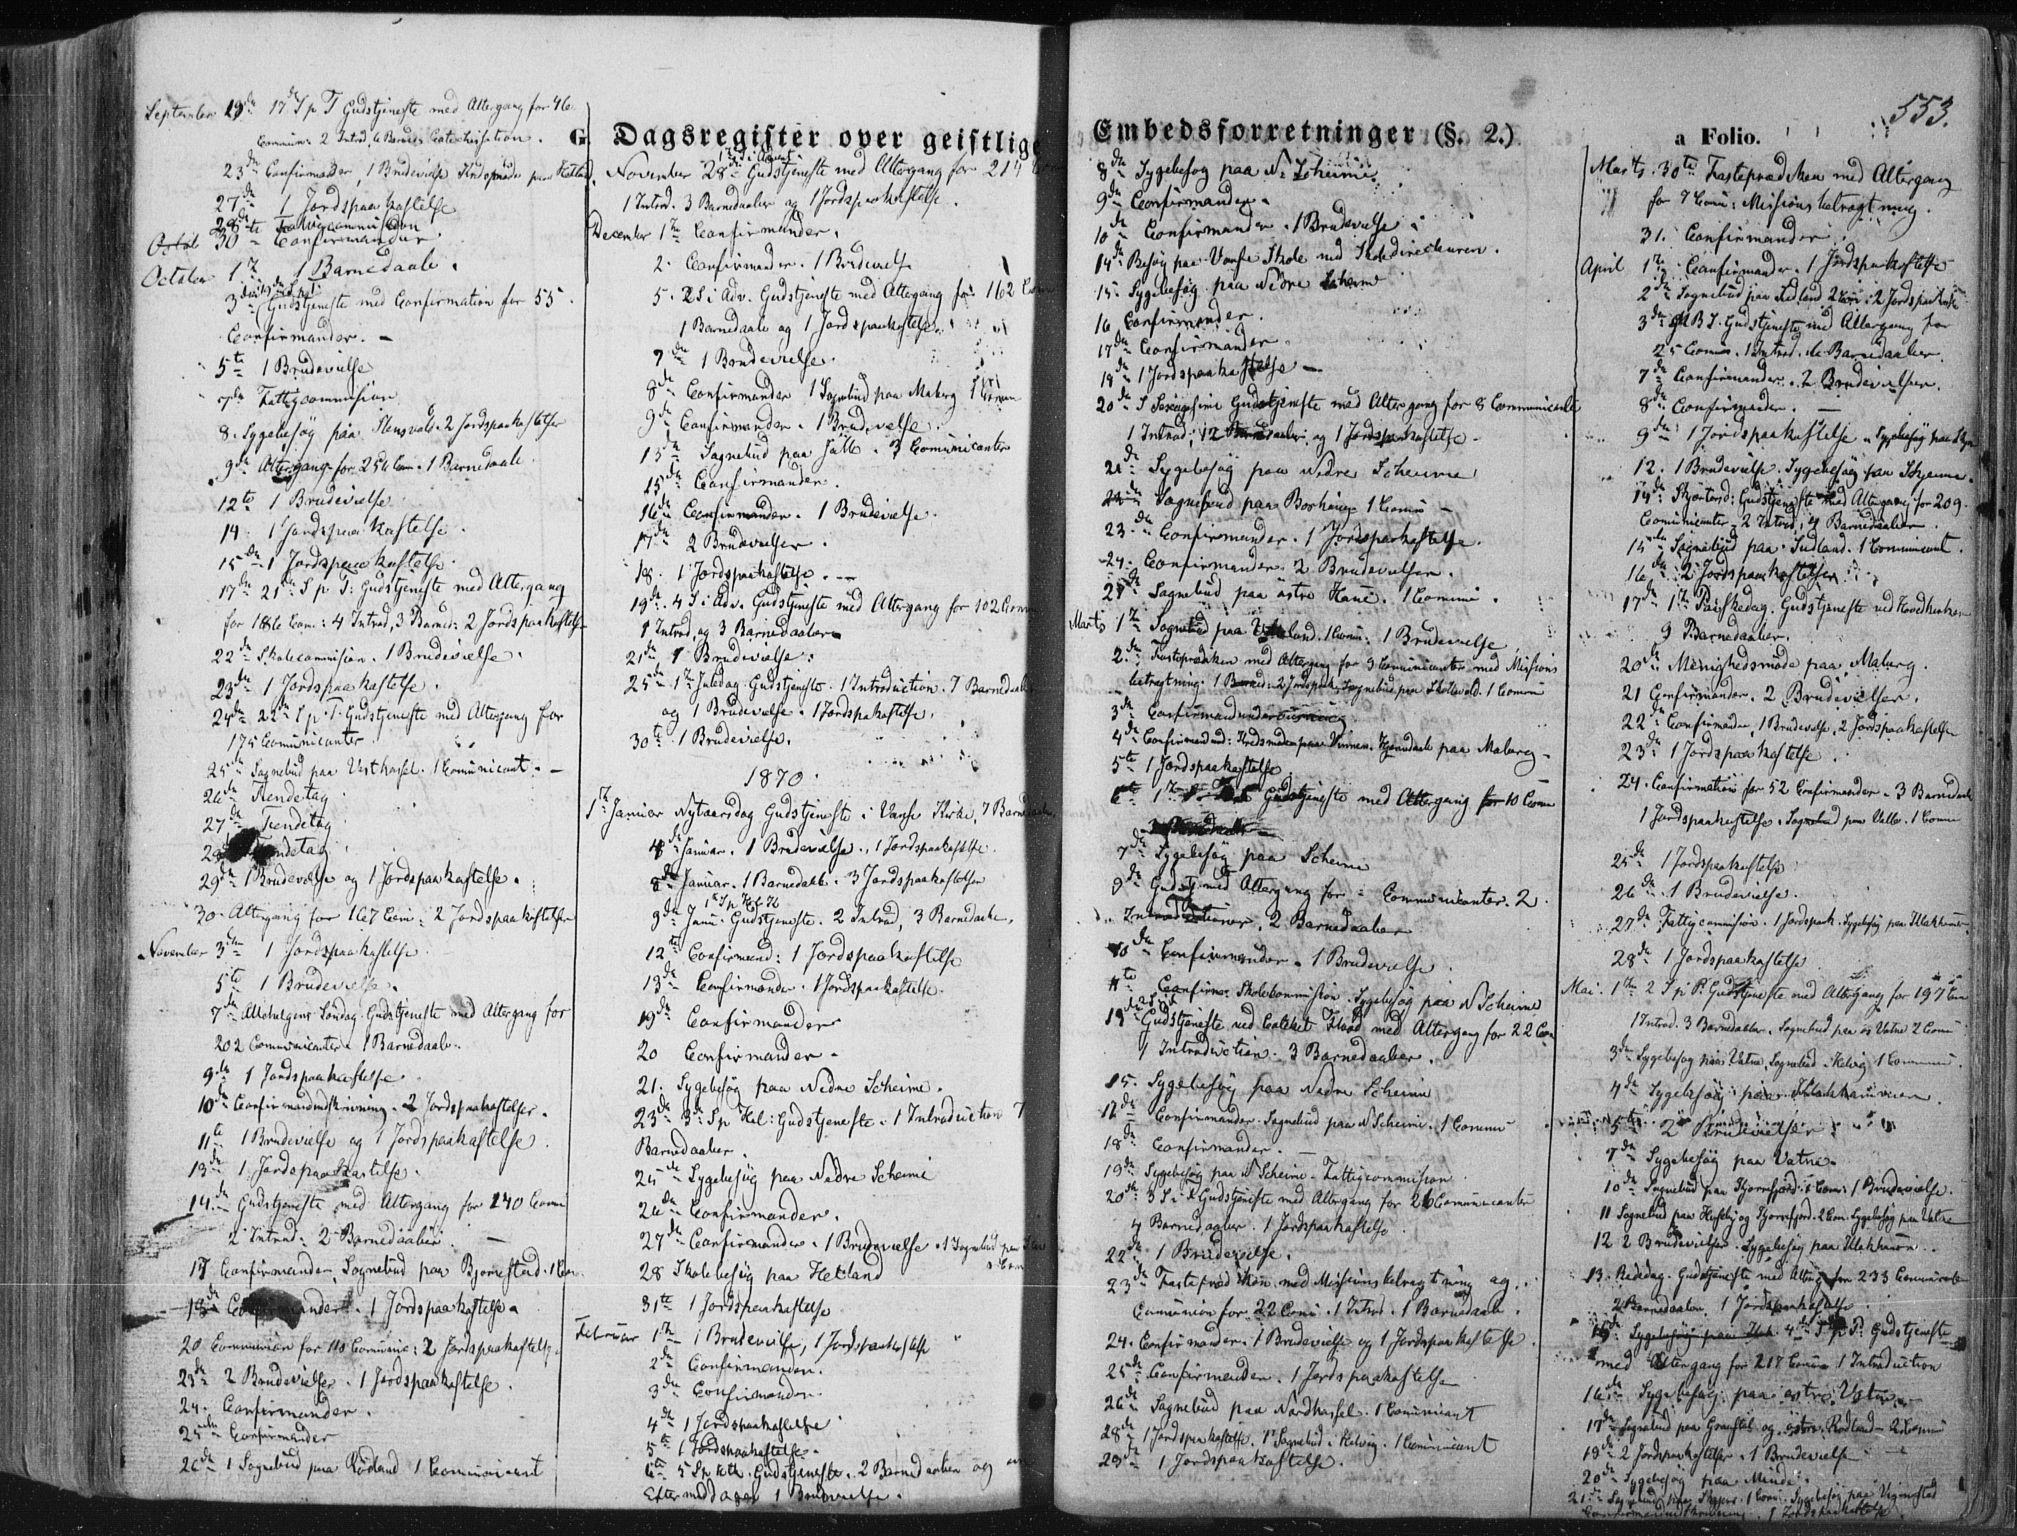 G. Dagsregister over geistlige
September 19de 17de S p T Gudstjeneste med Altergang for 46
Commun: 2 Introd. 6 Barned. Catechisation.
23de Confirmander, 1 Brudevielse
27de 1 Jordspaakastelse
28de Fattigcommission
30te Confirmander.
October 1te 1 Barnedaab.
3die Gudstjeneste med Confirmation for 55
Confirmander. -
5te 1 Brudevielse
7de Fattigcommission
8. Sygebesøg paa 2 Jordspaakastelser
9de Altergang for 256 Com. 1 Barnedaab.
12te 1 Brudevielse
14. 1 Jordspaakastelse.
15de 1 Jordspaakastelse.
17de 21de S p T: Gudstjeneste med Altergang
for 186 Com: 4 Introd, 3 Barned: 2 Jordspaakastelse
22de Skolecommission. 1 Brudevielse.
23de 1 Jordspaakastelse.
24de 22de S p T Gudstjeneste med Altergang for
175 Communicanter
25de Sognebud paa Vesthassel. 1 Communicant. -
26de Tiendetag
27de Tiendetag
Tiendetag
29de 1 Brudevielse og 1 Jordspaakastelse.
30. Altergang for 167 Com: 2 Jordspaakastelser
November 3die 1 Jordspaakastelse.
5te 1 Brudevielse.
7de Allehelgens Søndag. Gudstjeneste med Altergang for
202 Communicanter. 1 Barnedaab.
9de 1 Jordspaakastelse
10de Confirmandindskrivning. 2 Jordspaakastelser.
11te 1 Brudevielse og 1 Jordspaakastelse.
13de 1 Jordspaakastelse.
14de Gudstjeneste med Altergang for 140 Comu
2 Introd: 2 Barnedaaber. -
17 Confirmander, Sognebud paa Bjørnestad. 1 Com.
18de Confirmander. 1 Jordspaakastelse.
20 Communion for 110 Commun: 2 Jordspaakastelse.
23de 2 Brudevielser. 1 Jordspaakastelse.
24. Confirmander.
25de Confirmander
26de 1 Sognebud paa Rødland 1 Communicant
November 28de 1 S i Advent Gudstjeneste med Altergang for 214
1 Introd. 3 Barnedaaber og 1 Jordspaakastelse.
December 1te Confirmander.
2. Confirmander. 1 Brudevielse
5. 2 S i Adv. Gudstjeneste med Altergang for 162 Com
1 Barnedaab og 1 Jordspaakastelse.
7de 1 Brudevielse.
8de Confirmander 1 Sognebud paa Maberg 1 Commun
9de Confirmander. 1 Brudevielse.
13de Sognebud paa 3 Communicanter
15de Confirmander.
16de Confirmander. 1 Brudevielse.
17de 2 Brudevielser.
18. 1 Jordspaakastelse. -
19de 4 S i Adv. Gudstjeneste med Altergang for 102 Com
1 Introd, og 3 Barnedaaber
21de 1 Brudevielse:
25de 1te Juledag. Gudstjeneste. 1 Introduction. 7 Barnedaaber
og 1 Brudevielse. 1 Jordspaakastelse.
30te 1 Brudevielse.
1870.
1te Januar Nytaarsdag Gudstjeneste i Vanse Kirke, 7 Barnedaaber
4de Januar. 1 Brudevielse., 1 Jordspaakastelse.
8de Januar. 1 Barnedaab. 3 Jordspaakastelser
9de Janu. Gudstjeneste. 2 Introd, 3 Barnedaabe.
12te Confirmand: 1 Jordspaakastelse
13de Confirmander. 1 Jordspaakastelse.
19de Confirmander
20 Confirmander.
21. Sygebesøg paa Nedre Scheime.
23de 3die S p Hel: Gudstjeneste. 1 Introduction 7
Barnedaaber.
25de Sygebesøg paa Nedre Scheime
26de Confirmander.
27de Confirmander. 1 Brudevielse. 1 Sognebud paa
28 Skolebesøg paa Hetland
31te 1 Jordspaakastelse
Februar 1te 1 Brudevielse, 1 Jordspaakastelse
2de Confirmander.
3die Confirmander.
4de 1 Jordspaakastelse
5te 1 Jordspaakastelse.
6te 5 Sp Gudstjeneste. 2 Barnedaaber og
Eftermiddagen 1 Brudevielse.
Embedsforretninger (§. 2.)
a Folio.
553.
8de Sygebesøg paa N: Scheime.
9de Confirmander.
10de Confirmander. 1 Brudevielse.
14de Besøg paa Vanse Skole med Skoledirecteuren.
15. Sygebesøg paa Nedre Scheime
16 Confirmander.
17de Confirmander.
19de 1 Jordspaakastelse -
20de S Gudstjeneste med Altergang for 8 Communicanter
1 Introd, 12 Barnedaaber og 1 Jordspaakastelse.
21de Sygebesøg paa Nedre Scheime
Sognebud paa Borhaug 1 Comu -
23de Confirmander. 1 Jordspaakastelse.
24. Confirmander. 2 Brudevielser.
Sognebud paa østre Haue. 1 Commu.
Marts 1te Sognebud paa 1 Comu: 1 Brudevielse
2den Fasteprædiken med Altergang for 3 Communicanter med Missions
betragtning. Sognebud paa 1 Commu
3die
4de Confirmand: paa Maberg.
5te 1 Jordspaakastelse
6te 1te Gudstjeneste med Altergang for 10 Comu
7de Sygebesøg paa Scheime
9de Gudstj med Altergang for Communicanter. 2
Introductioner, 2 Barnedaaber
10de Confirmander. 1 Brudevielse
11te Confirm. Skolekommission. Sygebesøg paa N Scheime
13de Gudstjeneste ved Cateket med Altergang for 22 Com
1 Introduction. 3 Barnedaaber.
15. Sygebesøg paa Nedre Scheime
Confirmander. Sognebud paa N Scheime. 1 Commu
18de Confirmander. -
19de Sygebesøg paa N Scheime. Fattigcommission.
20de 3 S i F Gudstjeneste med Altergang for 26 Communicanter
4 Barnedaaber. 1 Jordspaakastelse.
22de 1 Brudevielse.
23de Fasteprædiken med Missionsbetragtning og
Communion for 22 Comu. 1 Introd. 1 Barnedaab.
24. Confirmander. 1 Brudevielse og 1 Jordspaakastelse.
25de Confirmander. 1 Jordspaakastelse
26de Sognebud paa Nordhassel. 1 Communicant
28de 1 Jordspaakastelse. 1 Sognebud i Helvig. 1 Communicant
29de 1 Jordspaakastelse.
Marts. 30te Fasteprædiken med Altergang
for 7 Comu: Missionsbetragtning.
31. Confirmander.
April 1te Confirmander. 1 Jordspaakastelse
2den Sognebud paa 2 Jordspaakastelse
3die Gudstjeneste med Altergang for
25 Commu. 1 Introd. Barnedaaber.
7de Confirmander. 2 Brudevielser.
8de Confirmander. -
9de 1 Jordspaakastelse. Sygebesøg paa
12. 1 Brudevielse. Sygebesøg paa Scheime.
14de Skjertorsd: Gudstjeneste med Altergang for 209.
Communicanter. 2 Introd, 4 Barnedaaber.
15de Sognebud paa 1 Communicant.
16de 2 Jordspaakastelser
17de 1te Paaskedag. Gudstjeneste ved Hovedkirken
9 Barnedaaber.
20de Menighedsmøde paa Maberg.
21 Confirmander. 2 Brudevielser.
22de Confirmander, 1 Brudevielse, 2 Jordspaakastelser
23de 1 Jordspaakastelse.
24. Confirmation for 52 Confirmander. 3 Barnedaab
1 Jordspaakastelse. Sognebud paa 1 Comu
25de 1 Jordspaakastelse
26de 1 Brudevielse.
27de Fattigcommission. 1 Jordspaak. Sygebesøg paa
28de 1 Jordspaakastelse
Mai. 1te 2 S p P. Gudstjeneste med Altergang for 197 Com
1 Introd. 3 Barnedaaber. Sognebud paa Vatne 2 Comu
3die Sygebesøg paa Vatne, Sognebud i Helvig 1 Commu.
4de Sygebesøg paa
5te 2 Brudevielser.
7de Sygebesøg paa Vatne.
10de Sognebud paa 1 Com: 1 Brudevielse.
11 Sognebud paa Huseby og 2 Com. Sygebesøg paa Vatne
12 2 Brudevielser. Sygebesøg paa
13. Bededag. Gudstjeneste med Alterg. for 233 Communicanter
2 Barnedaaber, 1 Jordspaakastelse
15de 4de S p P. Gudstjeneste
med Altergang for 217 Comu 1 Introduction
16de Sygebesøg paa østre Vatne
17de Sognebud paa og østre Rødland. 2 Commu
19de 2 Jordspaakastelser. 1 Brudevielse
20de Sygebesøg paa
21de Sognebud paa 1 Com. Sygebesøg paa
Confirmandindskrivning. 1 Jordspaakastelse.